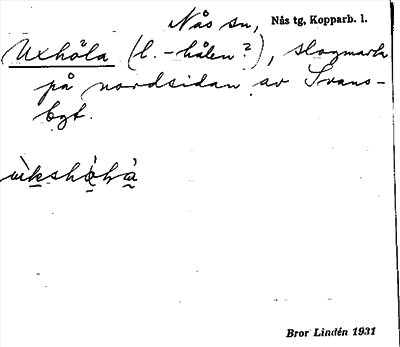 Nås sn, Nås tg, Kopparb. l.
Uxhöla (l. -hålen?), slogmark
på nordsidan av Svans-
bgt.
Bror Lindén 1931